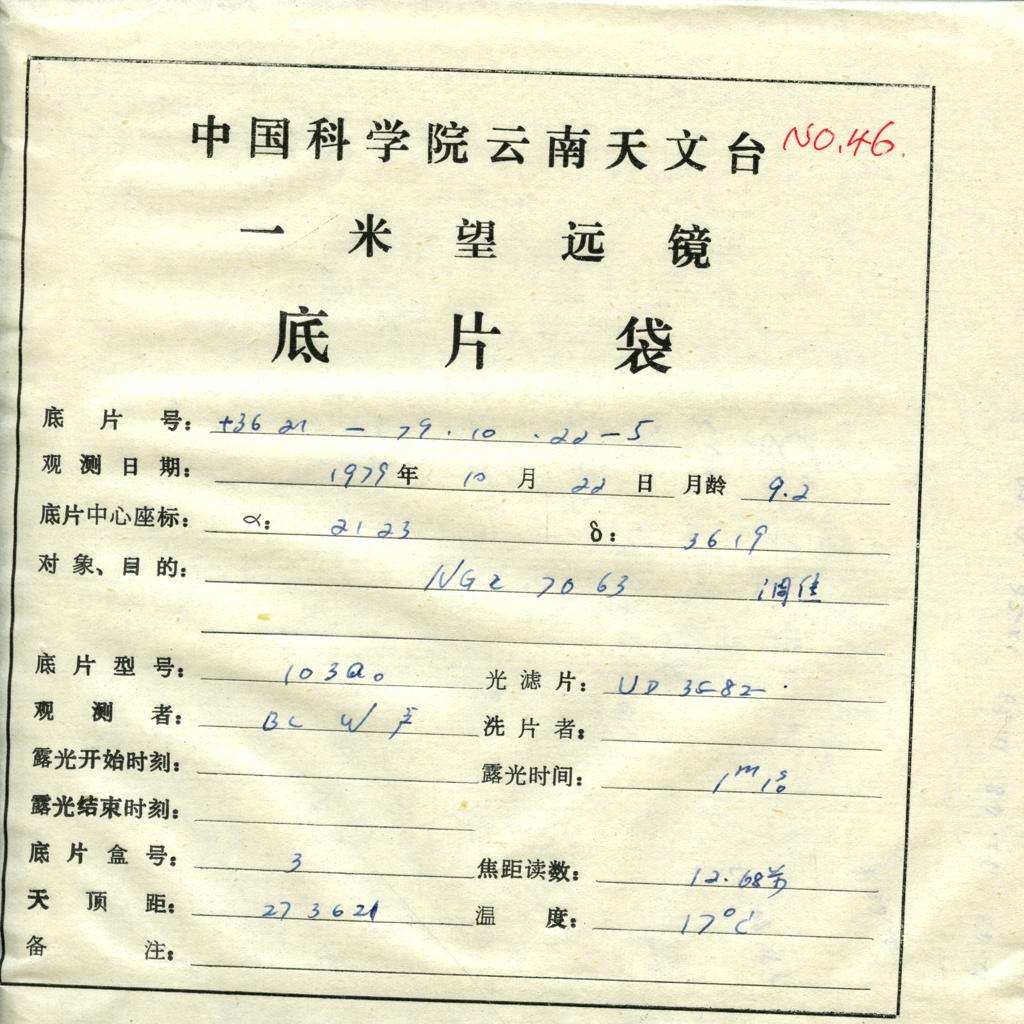 中国科学院云南天文台 NO.46.
一米望远镜
底片袋
底片号: +36 21 - 79.10.22-5
观测日期: 1979年 10月 22日 月龄 9.2
底片中心座标: α: 21 23 δ: 36 19
对象、目的: NGC 7063
底片型号: 103aO 光滤片:
观测者: 洗片者:
露光开始时刻: 露光时间:
露光结束时刻:
底片盒号: 3 焦距读数: 12.68
天顶距: 27 36 21 温度: 17°C
备注: